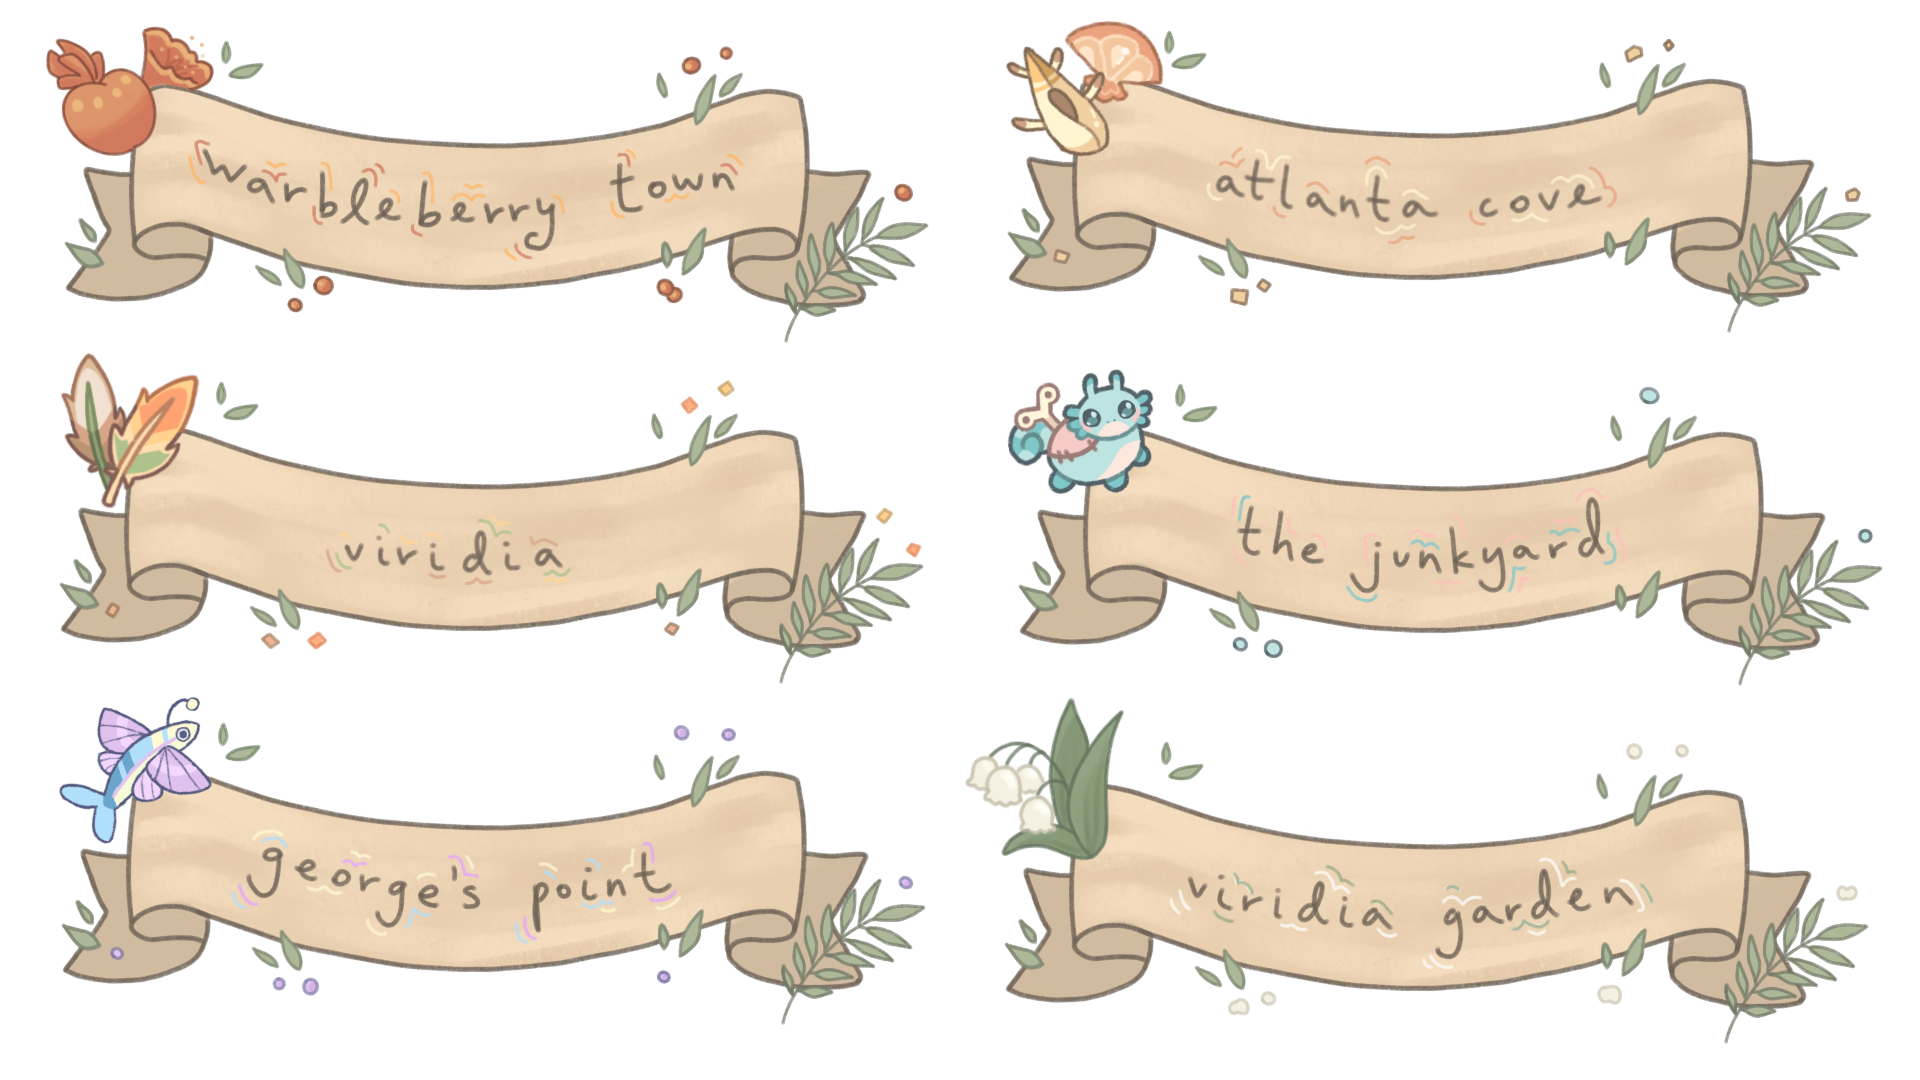 warbleberry town
atlanta cove
viridia
the junkyard
george's point
viridia garden